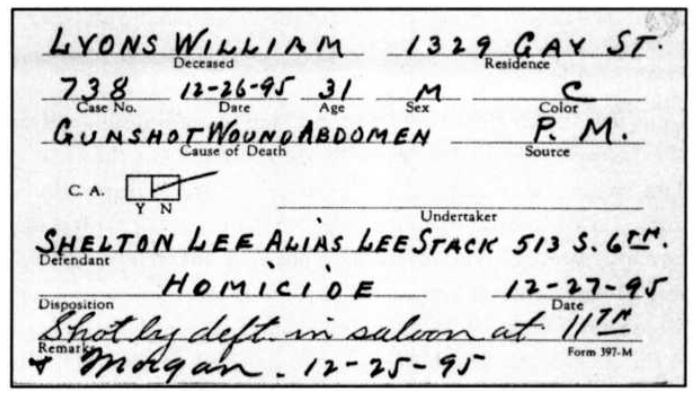 LYONS WILLIAM 1329 GAY ST.
Deceased Residence
738 12-26-95 31 M C
Case No. Date Age Sex Color
GUNSHOT WOUND ABDOMEN P. M.
Cause of Death Source
C. A.
Y N
Undertaker
SHELTON LEE ALIAS LEE STACK 513 S. 6TH.
Defendant
HOMICIDE 12-27-95
Disposition Date
Shot by deft. in saloon at 11TH
Remarks Form 397-M
& Morgan. 12-25-95